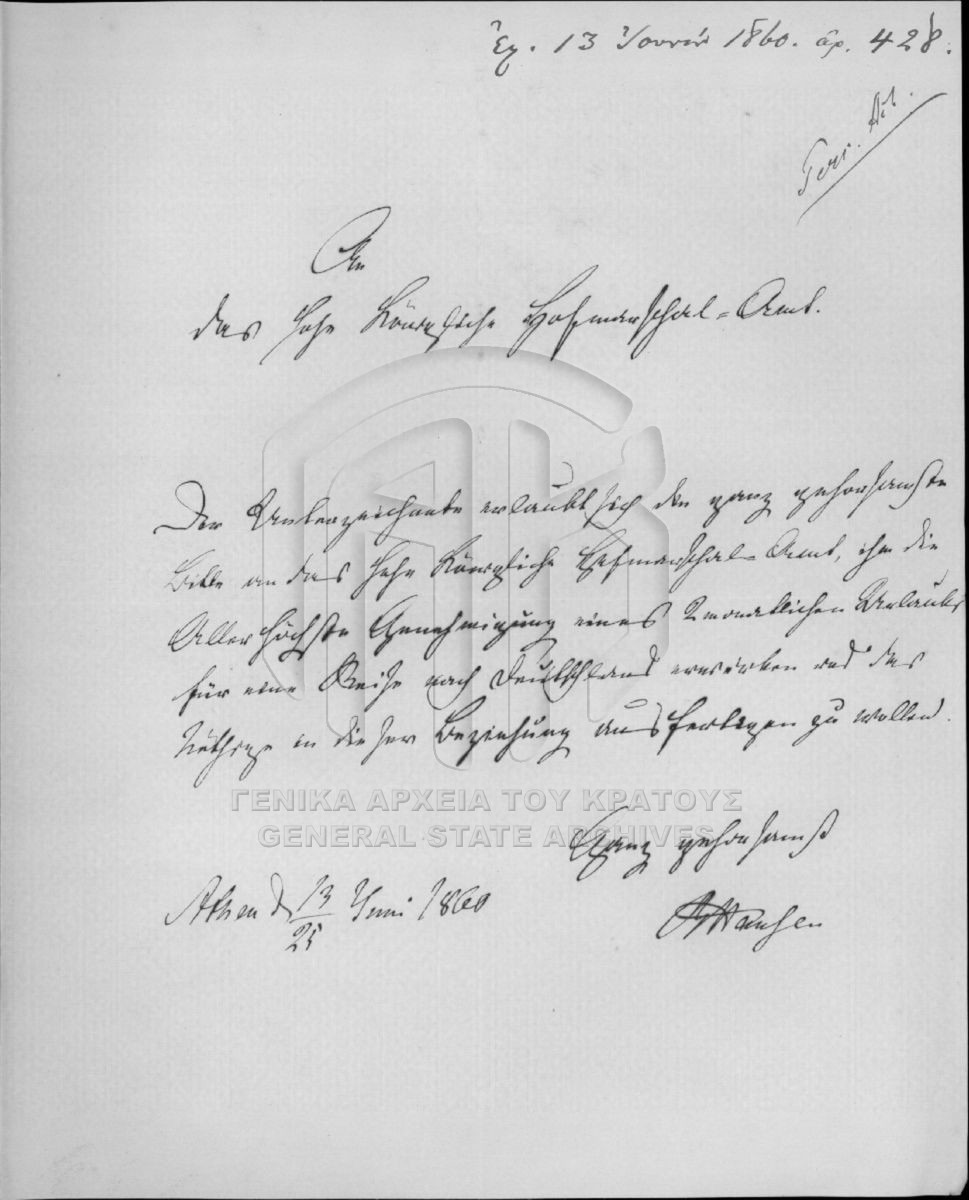 Ἐλ. 13 Ἰουνίου 1860. ἀρ. 428.
An
das hohe Königliche Hofmarschal-Amt.
Der Unterzeichnete erlaubt sich die ganz gehorsamste
Bitte an das hohe Königliche Hofmarschal-Amt, ihm die
Allerhöchste Genehmigung eines 2 monatlichen Urlaubs
für eine Reise nach Deutschland erwirken und das
Nöthige in dieser Beziehung ausfertigen zu wollen.
ΓΕΝΙΚΑ ΑΡΧΕΙΑ ΤΟΥ ΚΡΑΤΟΥΣ
GENERAL STATE ARCHIVES
Ganz gehorsamst
Athen d 13/25 Juni 1860
Hansen